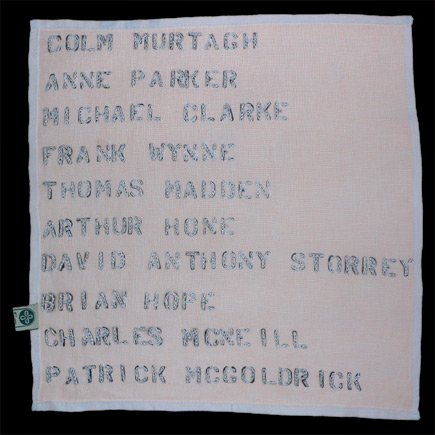 COLM MURTAGH
ANNE PARKER
MICHAEL CLARKE
FRANK WYNNE
THOMAS MADDEN
ARTHUR HONE
DAVID ANTHONY STORREY
BRIAN HOPE
CHARLES MCNEILL
PATRICK MCGOLDRICK